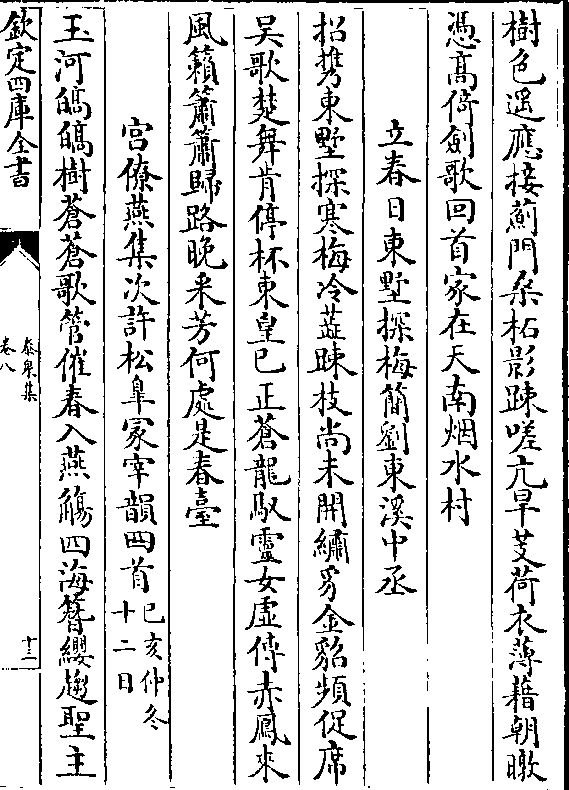 樹色遥應接薊門桑柘影踈嗟亢旱芰荷衣薄藉朝暾
憑髙倚劍歌回首家在天南烟水村
立春日東墅探梅簡劉東溪中丞
招携東墅探寒梅冷蕋踈枝尚未開繡豸金貂頻促席
吴歌楚舞肯停杯東皇已正蒼龍馭靈女虚傳赤鳳來
風籟簫簫歸路晚采芳何處是春臺
宫僚燕集次許松臯冢宰韻四首己亥仲冬十二日
玉河皜皜樹蒼蒼歌管催春入燕觴四海簪纓趨聖主
欽定四庫全書
泰泉集
卷八
十二